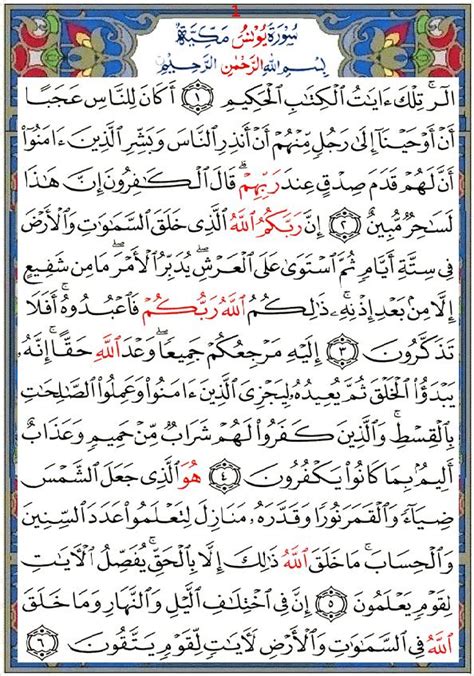 1
سُورَةُ يُونُسَ مَكِّيَّةٌ
بِسْمِ اللَّهِ الرَّحْمَٰنِ الرَّحِيمِ
الٓر ۚ تِلْكَ ءَايَٰتُ ٱلْكِتَٰبِ ٱلْحَكِيمِ ١ أَكَانَ لِلنَّاسِ عَجَبًا
أَنْ أَوْحَيْنَآ إِلَىٰ رَجُلٍ مِّنْهُمْ أَنْ أَنذِرِ ٱلنَّاسَ وَبَشِّرِ ٱلَّذِينَ ءَامَنُوٓا۟
أَنَّ لَهُمْ قَدَمَ صِدْقٍ عِندَ رَبِّهِمْ ۗ قَالَ ٱلْكَٰفِرُونَ إِنَّ هَٰذَا
لَسَٰحِرٌ مُّبِينٌ ٢ إِنَّ رَبَّكُمُ ٱللَّهُ ٱلَّذِى خَلَقَ ٱلسَّمَٰوَٰتِ وَٱلْأَرْضَ
فِى سِتَّةِ أَيَّامٍ ثُمَّ ٱسْتَوَىٰ عَلَى ٱلْعَرْشِ ۖ يُدَبِّرُ ٱلْأَمْرَ ۖ مَا مِن شَفِيعٍ
إِلَّا مِنۢ بَعْدِ إِذْنِهِۦ ۚ ذَٰلِكُمُ ٱللَّهُ رَبُّكُمْ فَٱعْبُدُوهُ ۚ أَفَلَا
تَذَكَّرُونَ ٣ إِلَيْهِ مَرْجِعُكُمْ جَمِيعًا ۖ وَعْدَ ٱللَّهِ حَقًّا ۚ إِنَّهُۥ
يَبْدَؤُا۟ ٱلْخَلْقَ ثُمَّ يُعِيدُهُۥ لِيَجْزِىَ ٱلَّذِينَ ءَامَنُوا۟ وَعَمِلُوا۟ ٱلصَّٰلِحَٰتِ
بِٱلْقِسْطِ ۚ وَٱلَّذِينَ كَفَرُوا۟ لَهُمْ شَرَابٌ مِّنْ حَمِيمٍ وَعَذَابٌ
أَلِيمٌۢ بِمَا كَانُوا۟ يَكْفُرُونَ ٤ هُوَ ٱلَّذِى جَعَلَ ٱلشَّمْسَ
ضِيَآءً وَٱلْقَمَرَ نُورًا وَقَدَّرَهُۥ مَنَازِلَ لِتَعْلَمُوا۟ عَدَدَ ٱلسِّنِينَ
وَٱلْحِسَابَ ۚ مَا خَلَقَ ٱللَّهُ ذَٰلِكَ إِلَّا بِٱلْحَقِّ ۚ يُفَصِّلُ ٱلْءَايَٰتِ
لِقَوْمٍ يَعْلَمُونَ ٥ إِنَّ فِى ٱخْتِلَٰفِ ٱلَّيْلِ وَٱلنَّهَارِ وَمَا خَلَقَ
ٱللَّهُ فِى ٱلسَّمَٰوَٰتِ وَٱلْأَرْضِ لَءَايَٰتٍ لِّقَوْمٍ يَتَّقُونَ ٦